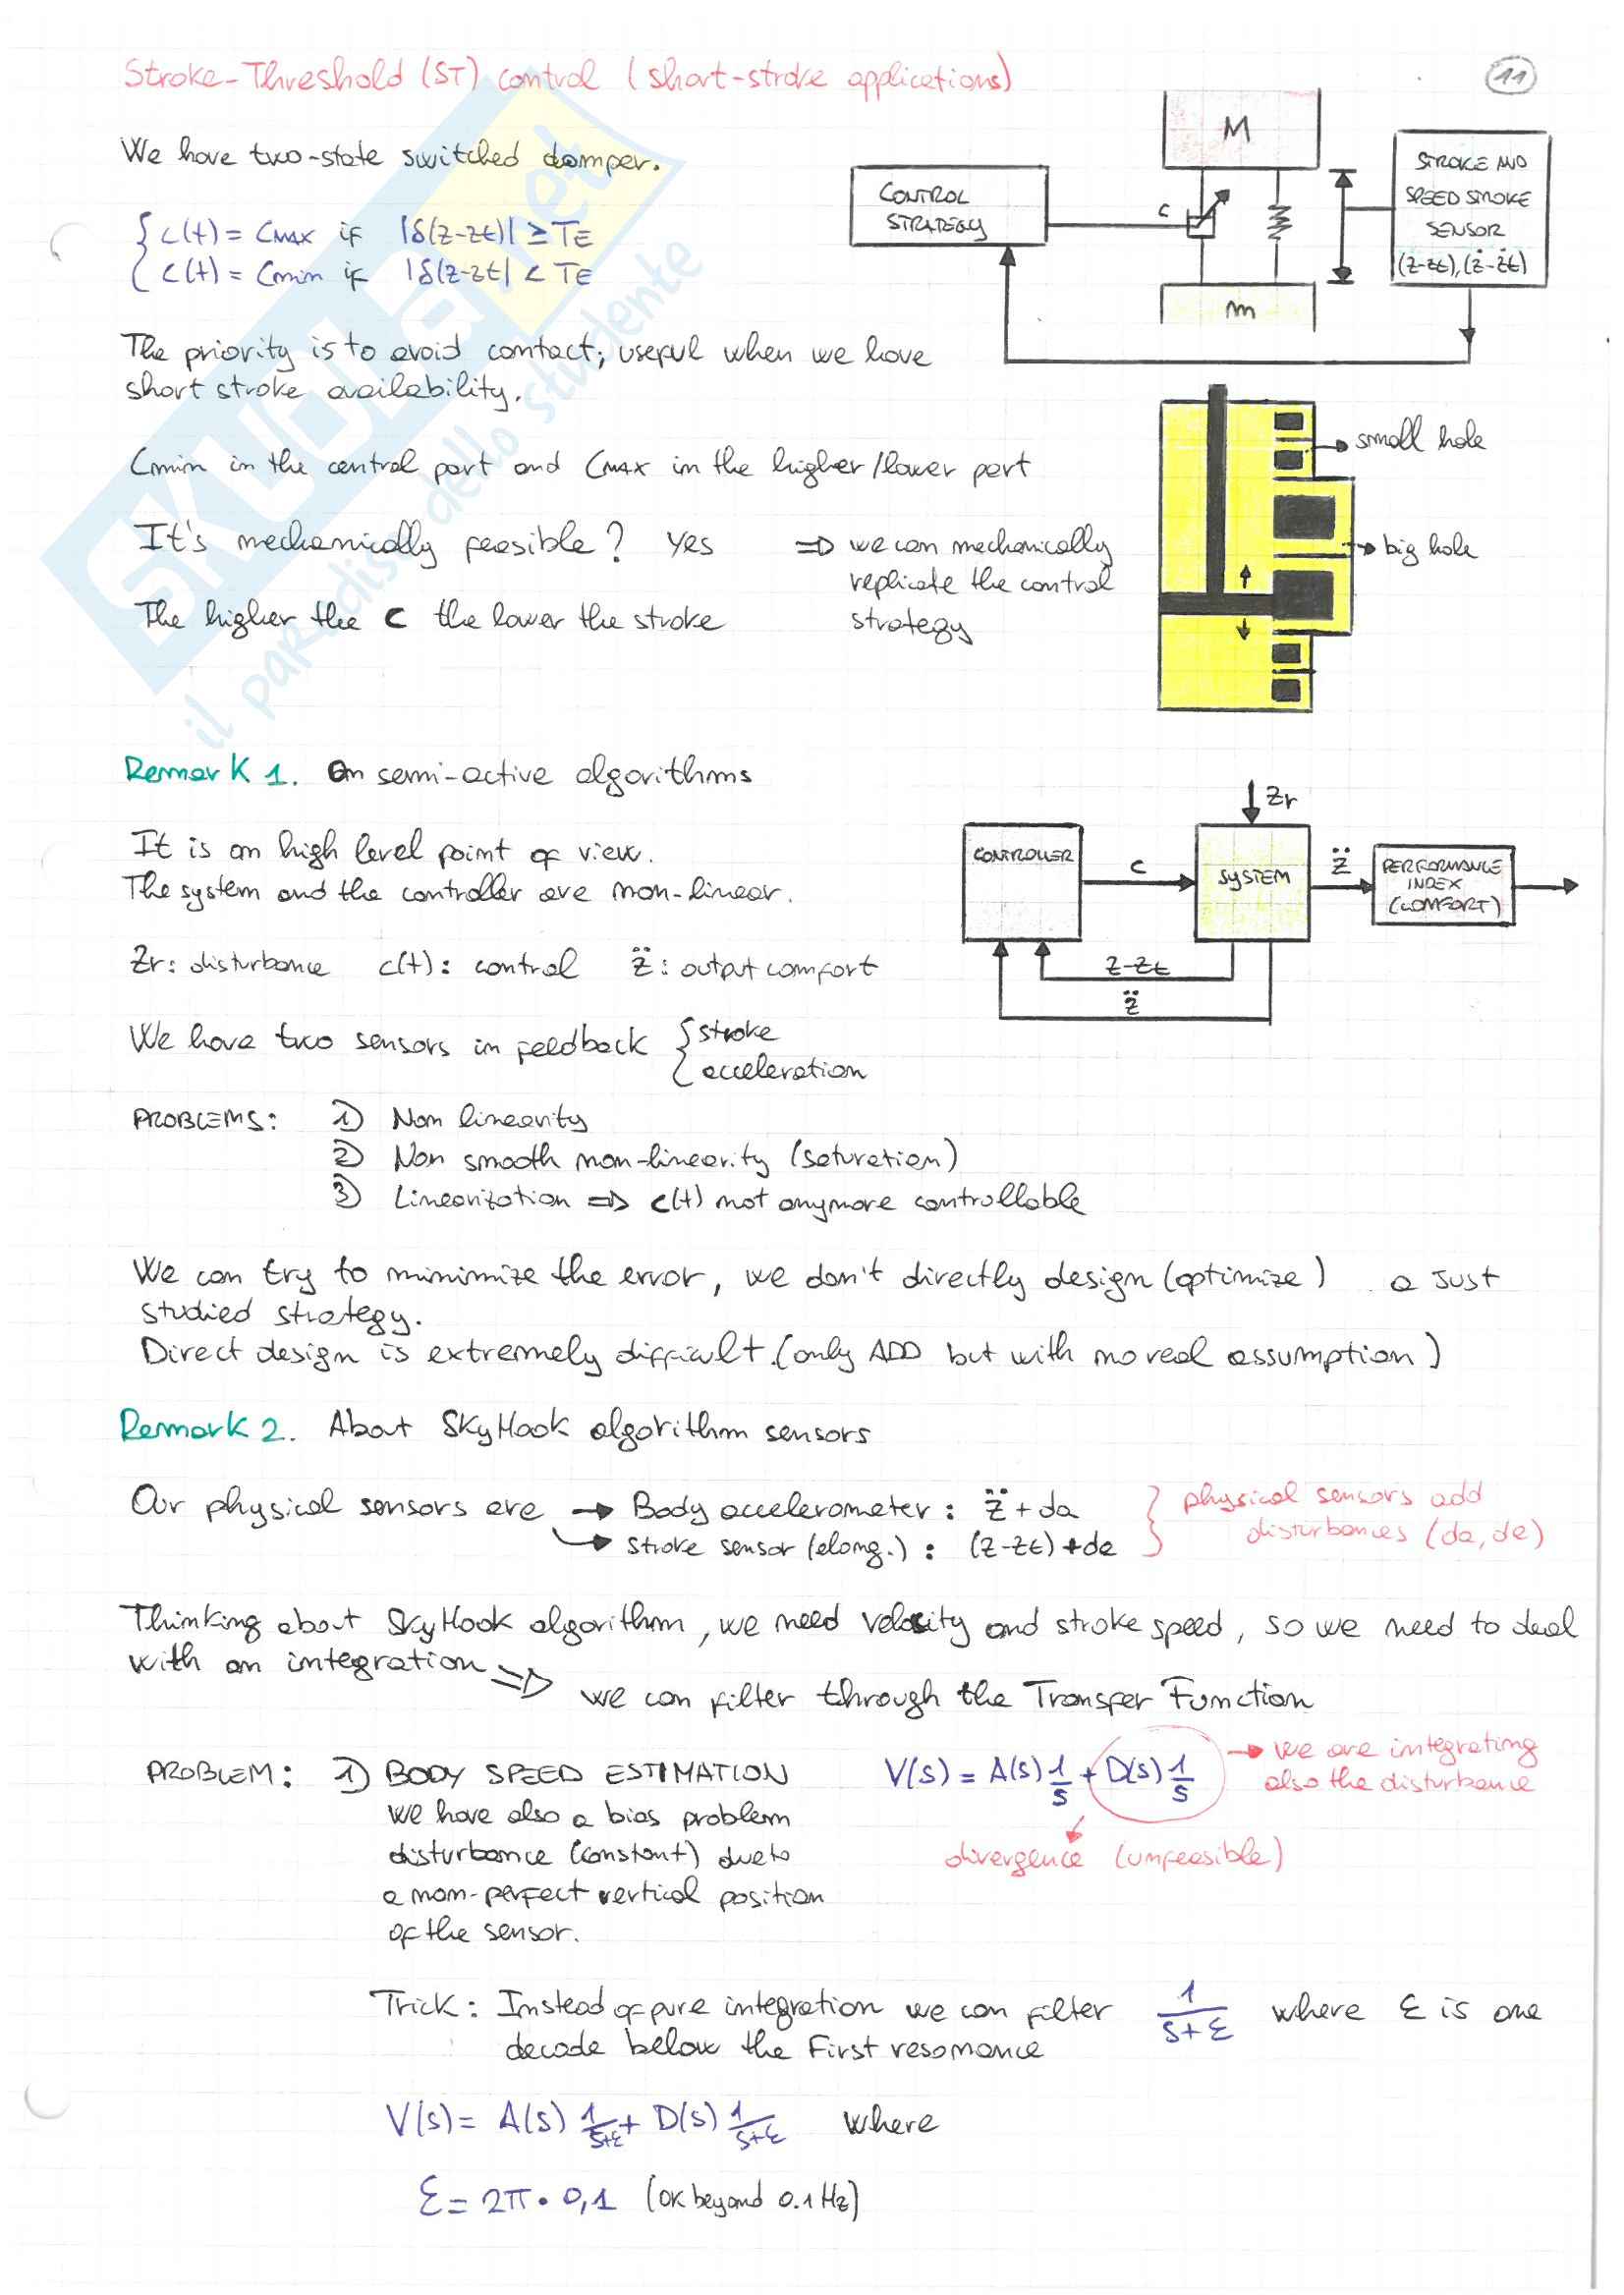 Stroke-Threshold (ST) control (short-stroke applications)
11
We have two-state switched damper.
{ c(t) = CMAX if |δ(z-zt)| ≥ TE
{ c(t) = Cmin if |δ(z-zt| < TE
M
CONTROL
STRATEGY
c
m
STROKE AND
SPEED STROKE
SENSOR
(z-zt), (ż-żt)
The priority is to avoid contact; useful when we have
short stroke availability.
small hole
Cmin in the central part and CMAX in the higher/lower part
It's mechanically feasible? Yes ⇒ we can mechanically
replicate the control
strategy
big hole
The higher the C the lower the stroke
SKUOLA.net
il paradiso dello studente
Remark 1. On semi-active algorithms
It is an high level point of view.
The system and the controller are non-linear.
Zr: disturbance c(t): control z̈: output comfort
We have two sensors in feedback { stroke
acceleration
CONTROLLER
c
Zr
SYSTEM
z̈
PERFORMANCE
INDEX
(COMFORT)
z-zt
z̈
PROBLEMS: 1) Non linearity
2) Non smooth non-linearity (saturation)
3) Linearization ⇒ c(t) not anymore controllable
We can try to minimize the error, we don't directly design (optimize) a just
studied strategy.
Direct design is extremely difficult. (only ADD but with no real assumption)
Remark 2. About SkyHook algorithm sensors
Our physical sensors are → Body accelerometer: z̈ + da
→ stroke sensor (elong.): (z-zt) + de
} physical sensors add
disturbances (da, de)
Thinking about SkyHook algorithm, we need velocity and stroke speed, so we need to deal
with an integration ⇒
we can filter through the Transfer Function
PROBLEM: 1) BODY SPEED ESTIMATION
V(s) = A(s) 1/s + D(s) 1/s
→ we are integrating
also the disturbance
divergence (unfeasible)
we have also a bias problem
disturbance (constant) due to
a non-perfect vertical position
of the sensor.
Trick: Instead of pure integration we can filter 1/(s+ε) where ε is one
decade below the First resonance
V(s) = A(s) 1/(s+ε) + D(s) 1/(s+ε) where
ε = 2π • 0,1 (ok beyond 0.1 Hz)